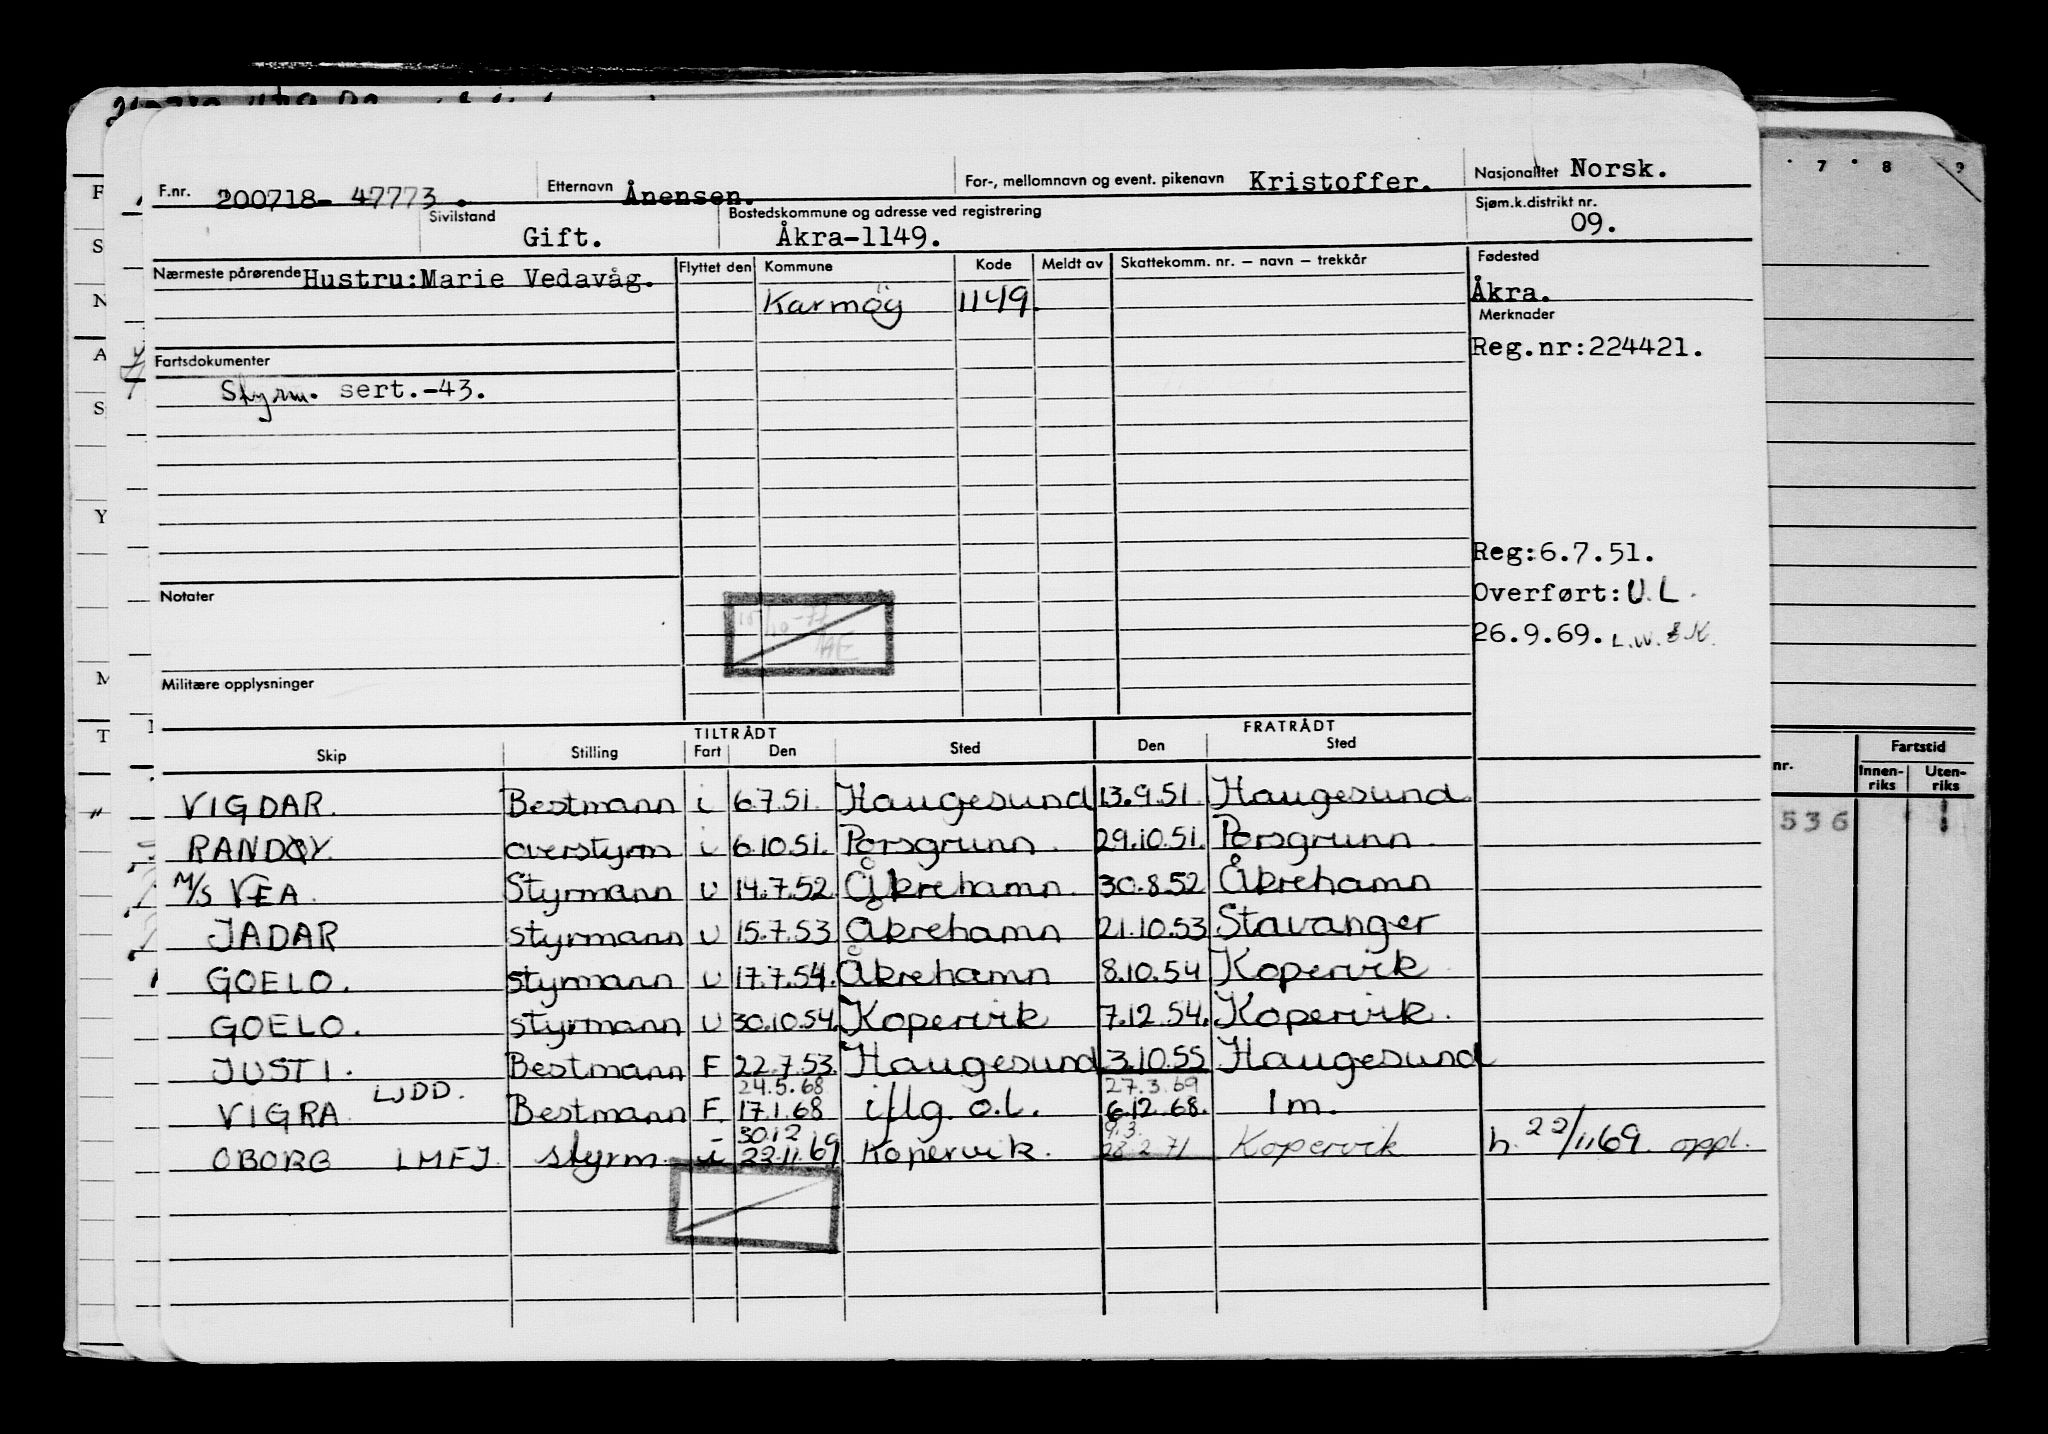 F.nr. 200718- 47773. Etternavn Ånensen. For-, mellomnavn og event. pikenavn Kristoffer. Nasjonalitet Norsk.
Sivilstand Gift. Bostedskommune og adresse ved registrering Åkra-1149. Sjøm.k.distrikt nr. 09.
Nærmeste pårørende Hustru:Marie Vedavåg. Flyttet den Kommune Kode Meldt av Skattekomm. nr. – navn – trekkår Fødested
Karmøy 1149. Åkra.
Merknader
Fartsdokumenter Reg.nr:224421.
Styrm. sert.-43.
Reg:6.7.51.
Notater Overført: U.L.
26.9.69. L.W.&K.
Militære opplysninger
TILTRÅDT FRATRÅDT
Skip Stilling Fart Den Sted Den Sted
VIGDAR. Bestmann i 6.7.51. Haugesund 13.9.51. Haugesund
RANDØY. overstyrm i 6.10.51. Porsgrunn. 29.10.51. Porsgrunn.
M/S VEA. Styrmann U 14.7.52. Åkrehamn. 30.8.52 Åkrehamn
JADAR styrmann U 15.7.53 Åkrehamn 21.10.53 Stavanger
GOELO. styrmann U 17.7.54. Åkrehamn 8.10.54 Kopervik
GOELO. styrmann U 30.10.54. Kopervik 7.12.54. Kopervik.
JUSTI. Bestmann F 22.7.53. Haugesund 3.10.55 Haugesund
LJDD. 24.5.68 27.3.69
VIGRA Bestmann F. 17.1.68 iflg. o.l. 6.12.68. 1m.
30.12 9.3.
OBORG LMFJ styrm. i 22.11.69 Kopervik. 28.2.71 Kopervik h. 22/11.69. oppl.
7 8 9
nr. Fartstid
Innen-riks Uten-riks
536 1
F
S
N
A
S
Y
M
T